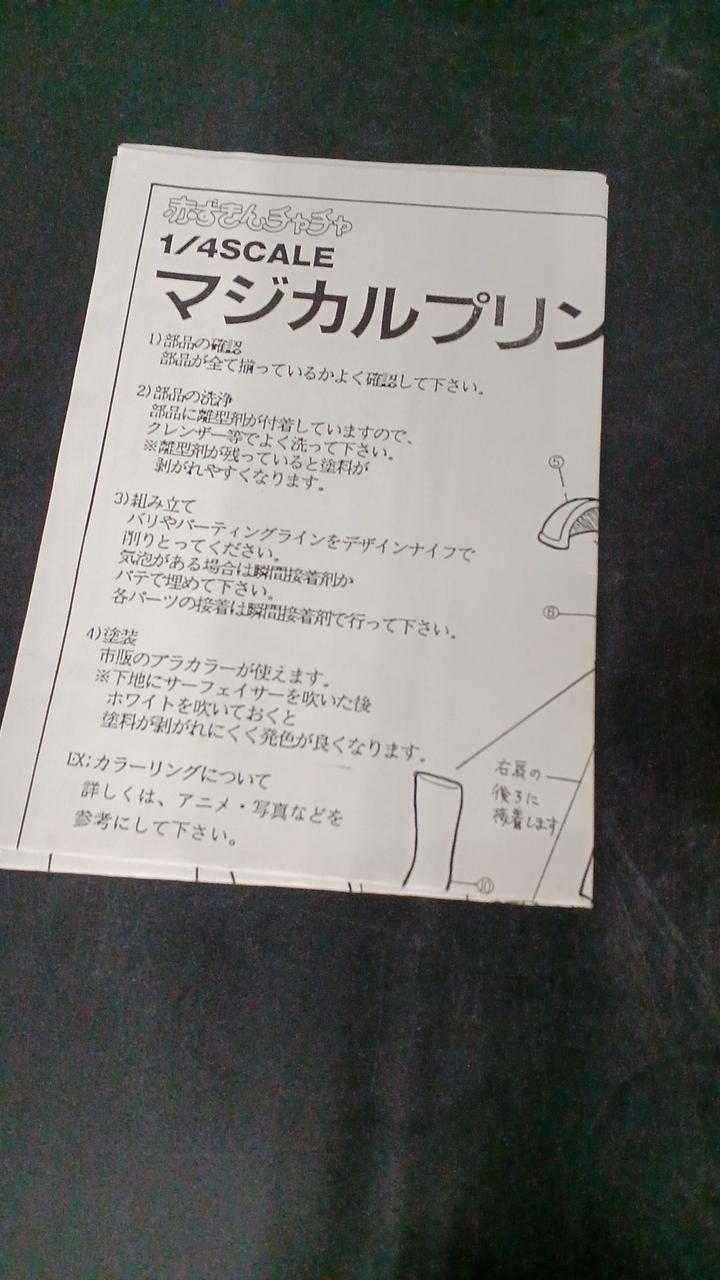 赤ずきんチャチャ
1/4SCALE
マジカルプリン
1)部品の確認
部品が全て揃っているかよく確認して下さい。
2)部品の洗浄
部品に離型剤が付着していますので、
クレンザー等でよく洗って下さい。
※離型剤が残っていると塗料が
剥がれやすくなります。
3)組み立て
バリやパーティングラインをデザインナイフで
削りとってください。
気泡がある場合は瞬間接着剤か
パテで埋めて下さい。
各パーツの接着は瞬間接着剤で行って下さい。
4)塗装
市販のプラカラーが使えます。
※下地にサーフェイサーを吹いた後
ホワイトを吹いておくと
塗料が剥がれにくく発色が良くなります。
EX;カラーリングについて
詳しくは、アニメ・写真などを
参考にして下さい。
⑤
⑥
右肩の
後ろに
接着します
⑩